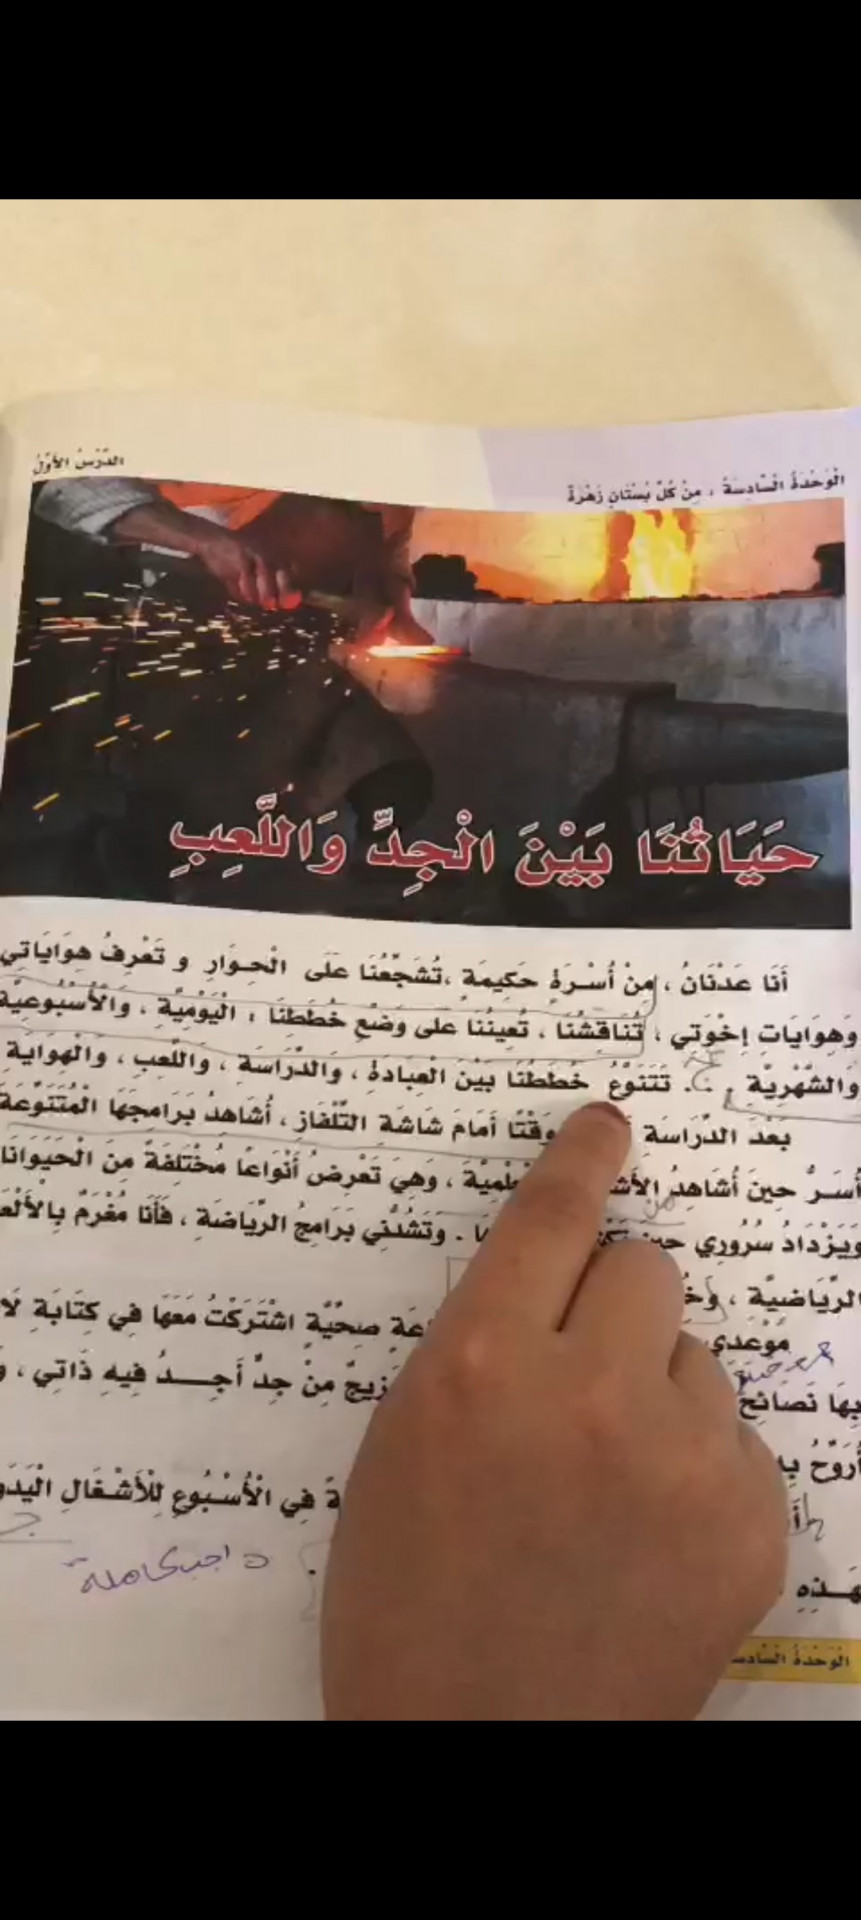 الْوَحْدَةُ السَّادِسَةُ ، مِنْ كُلِّ بُسْتَانٍ زَهْرَةٌ
الدَّرْسُ الْأَوَّلُ
حَيَاتُنَا بَيْنَ الْجِدِّ وَاللَّعِبِ
أَنَا عَدْنَانُ ، مِنْ أُسْرَةٍ حَكِيمَةٍ ، تُشَجِّعُنَا عَلَى الْحِوَارِ و تَعْرِفُ هِوَايَاتِي
وَهِوَايَاتِ إِخْوَتِي ، تُنَاقِشُنَا ، تُعِينُنَا على وَضْعِ خُطَطِنَا ؛ الْيَوْمِيَّةِ ، وَالْأُسْبُوعِيَّةِ
وَالشَّهْرِيَّةِ . تَتَنَوَّعُ خُطَطُنَا بَيْنَ الْعِبَادَةِ ، وَالدِّرَاسَةِ ، وَاللَّعِبِ ، وَالْهِوَايَةِ
بَعْدَ الدِّرَاسَةِ وَقْتًا أَمَامَ شَاشَةِ التِّلْفَازِ ، أُشَاهِدُ بَرَامِجَهَا الْمُتَنَوِّعَةَ
أُسَرُّ حِينَ أُشَاهِدُ ، وَهِيَ تَعْرِضُ أَنْوَاعًا مُخْتَلِفَةً مِنَ الْحَيَوَانَا
وَيَزْدَادُ سُرُورِي حِينَ . وَتَشُدُّنِي بَرَامِجُ الرِّيَاضَةِ ، فَأَنَا مُغْرَمٌ بِالْأَلْعَ
الرِّيَاضِيَّةِ ، صِحِّيَّةٍ اشْتَرَكْتُ مَعَهَا فِي كِتَابَةِ
مَوْعِدِي
بِهَا نَصَائِحَ مِنْ جِدٍّ أَجِـدُ فِيهِ ذَاتِي ، وَ
أُرَوِّحُ
فِي الْأُسْبُوعِ لِلْأَشْغَالِ الْيَدَوِ
الْوَحْدَةُ السَّادِسَ